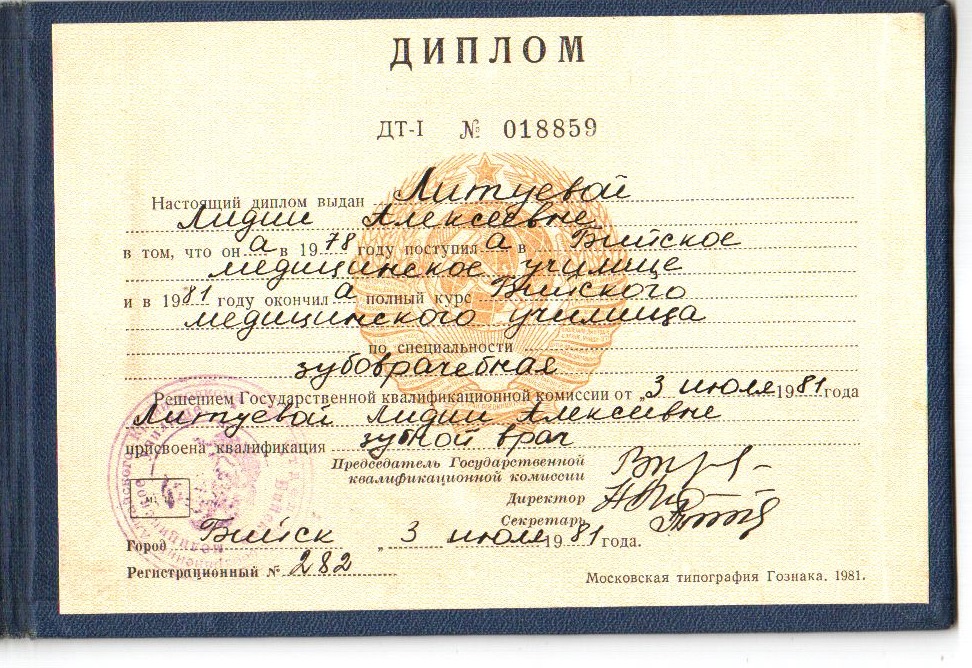 ДИПЛОМ
ДТ-I № 018859
Настоящий диплом выдан Литуевой
Лидии Алексеевне
в том, что он а в 1978 году поступил а в Бийское
медицинское училище
и в 1981 году окончил а полный курс Бийского
медицинского училища
по специальности
зубоврачебная
Решением Государственной квалификационной комиссии от „3 июля 1981 года
Литуевой Лидии Алексеевне
присвоена квалификация зубной врач
Председатель Государственной
квалификационной комиссии
Директор
Секретарь
Город Бийск „3 июля 1981 года.
Регистрационный № 282
Московская типография Гознака. 1981.